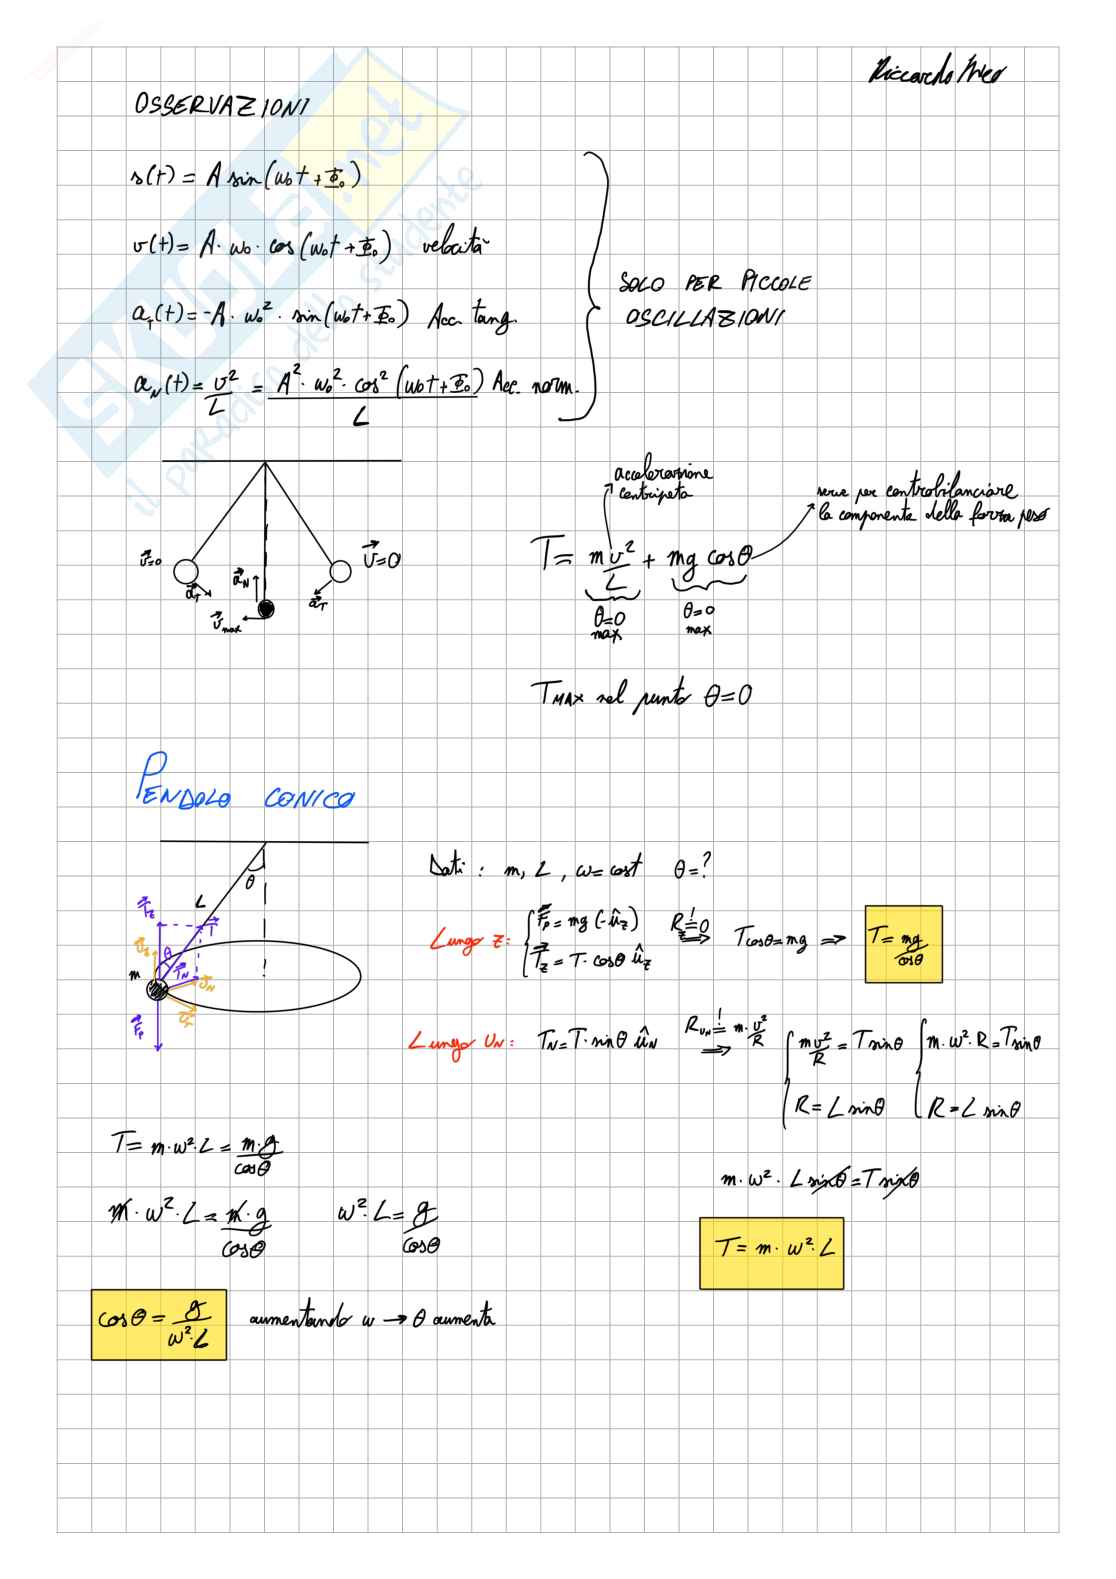 Riccardo
OSSERVAZIONI
s(t) = A sin(ω₀t + Φ₀)
v(t) = A · ω₀ · cos(ω₀t + Φ₀) velocità
a_T(t) = -A · ω₀² · sin(ω₀t + Φ₀) Acc. tang.
a_N(t) = v²/L = A² · ω₀² · cos²(ω₀t + Φ₀)/L Acc. norm.
SOLO PER PICCOLE
OSCILLAZIONI
SKUOLA.net
il paradiso dello studente
v⃗=0
a⃗_T
a⃗_N
v⃗_max
v⃗=0
a⃗_T
accelerazione
centripeta
serve per controbilanciare
la componente della forza peso
T = m v²/L + mg cosθ
θ=0
max
θ=0
max
T_MAX nel punto θ=0
PENDOLO CONICO
θ
L
T⃗_z
T⃗
u⃗_z
θ
T⃗_N
m
u⃗_N
u⃗_T
F⃗_P
Dati: m, L, ω=cost θ=?
Lungo z: { F⃗_P = mg(-û_z) R_z =! 0 ⇒ T cosθ = mg ⇒ T = mg/cosθ
T⃗_z = T · cosθ û_z
Lungo U_N: T_N = T · sinθ û_N R_UN =! m · v²/R ⇒ { m v²/R = T sinθ { m · ω² · R = T sinθ
R = L sinθ R = L sinθ
T = m · ω² · L = m · g/cosθ
m · ω² · L sinθ = T sinθ
m · ω² · L = m · g/cosθ ω² · L = g/cosθ
T = m · ω² · L
cosθ = g/ω² · L aumentando ω → θ aumenta